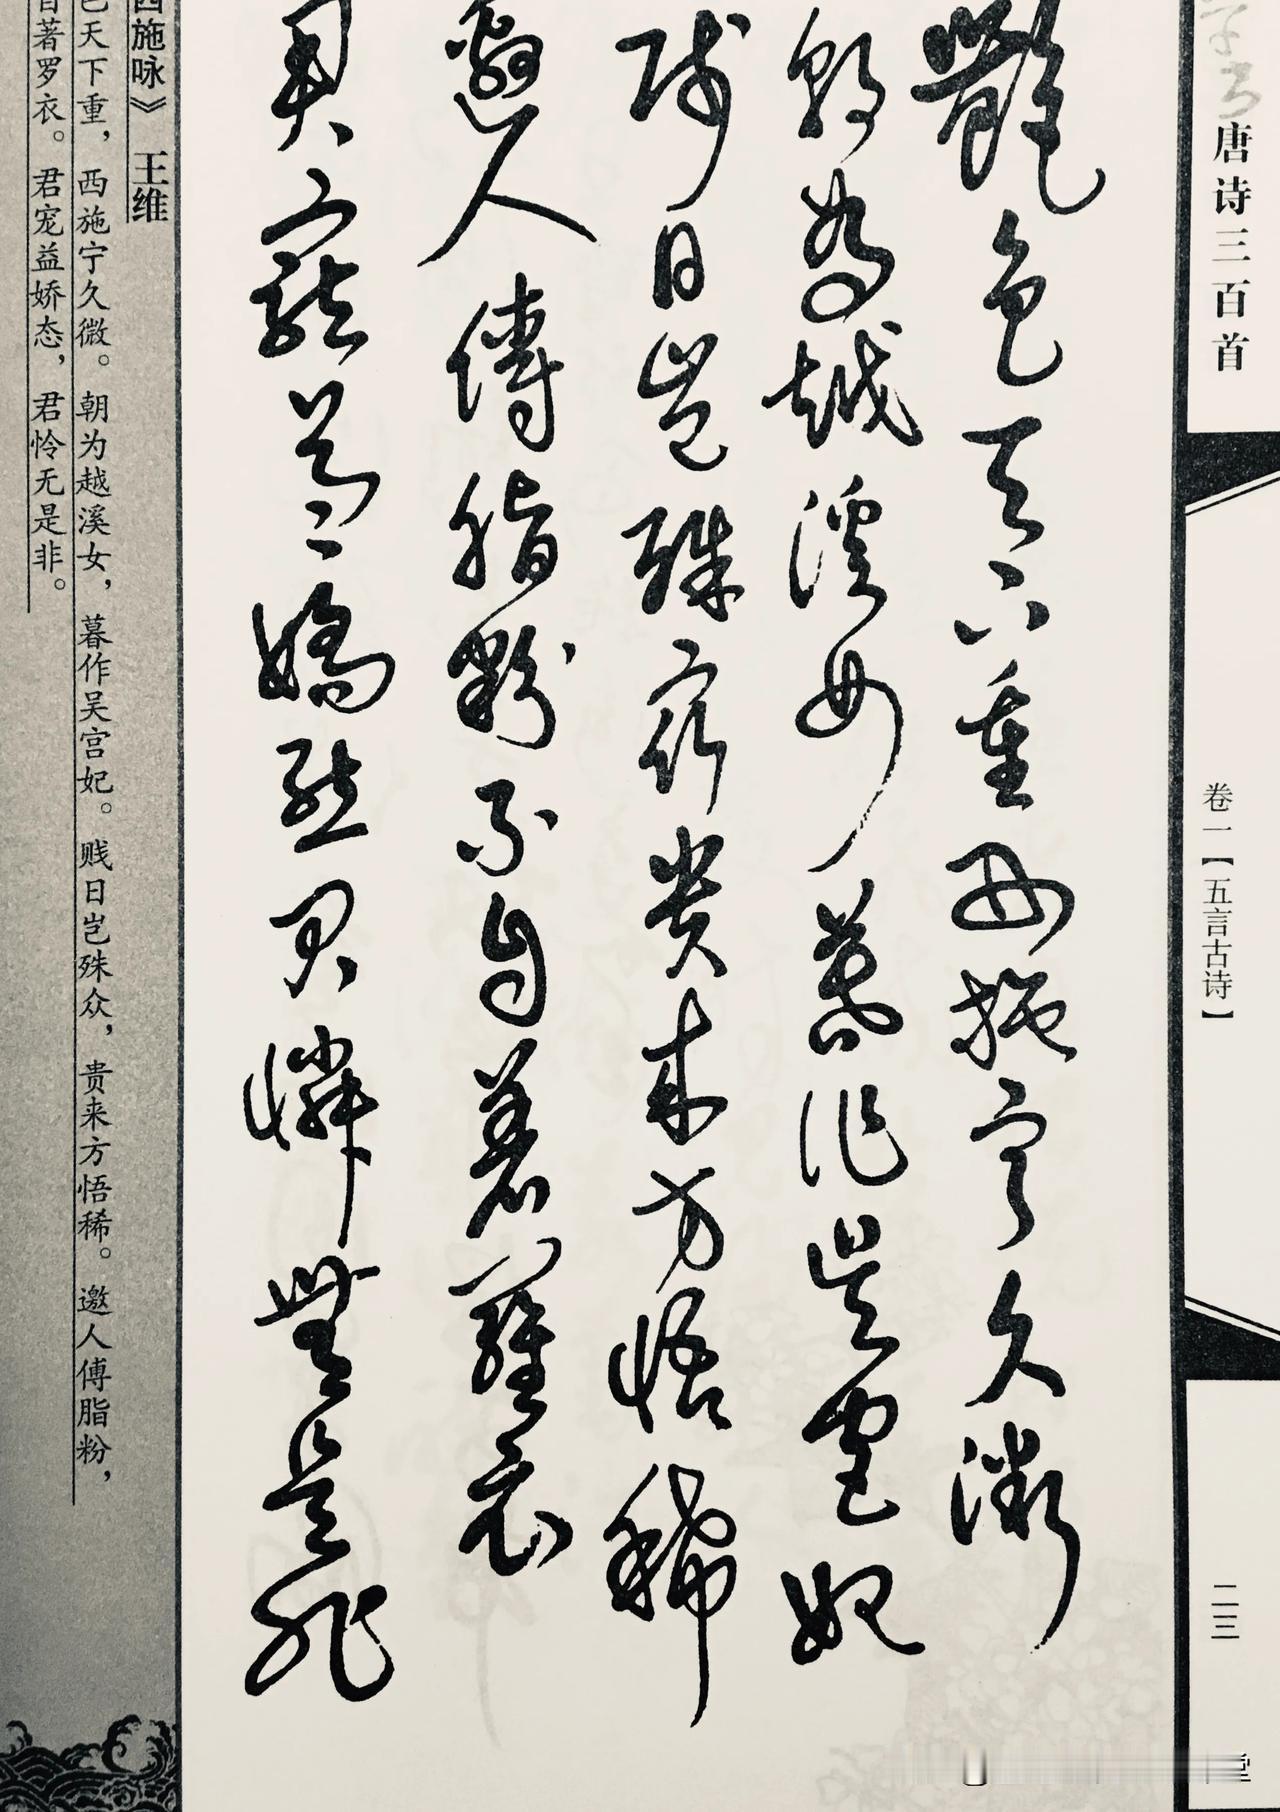 草书
唐诗三百首
卷一【五言古诗】
二三
艷色天下重西施寧久微
朝為越溪女暮作吴宫妃
賤日豈殊衆貴来方悟稀
邀人傅脂粉不自著羅衣
君寵益嬌態君憐無是非
西施咏》 王维
色天下重，西施宁久微。朝为越溪女，暮作吴宫妃。贱日岂殊众，贵来方悟稀。邀人傅脂粉，
自著罗衣。君宠益娇态，君怜无是非。